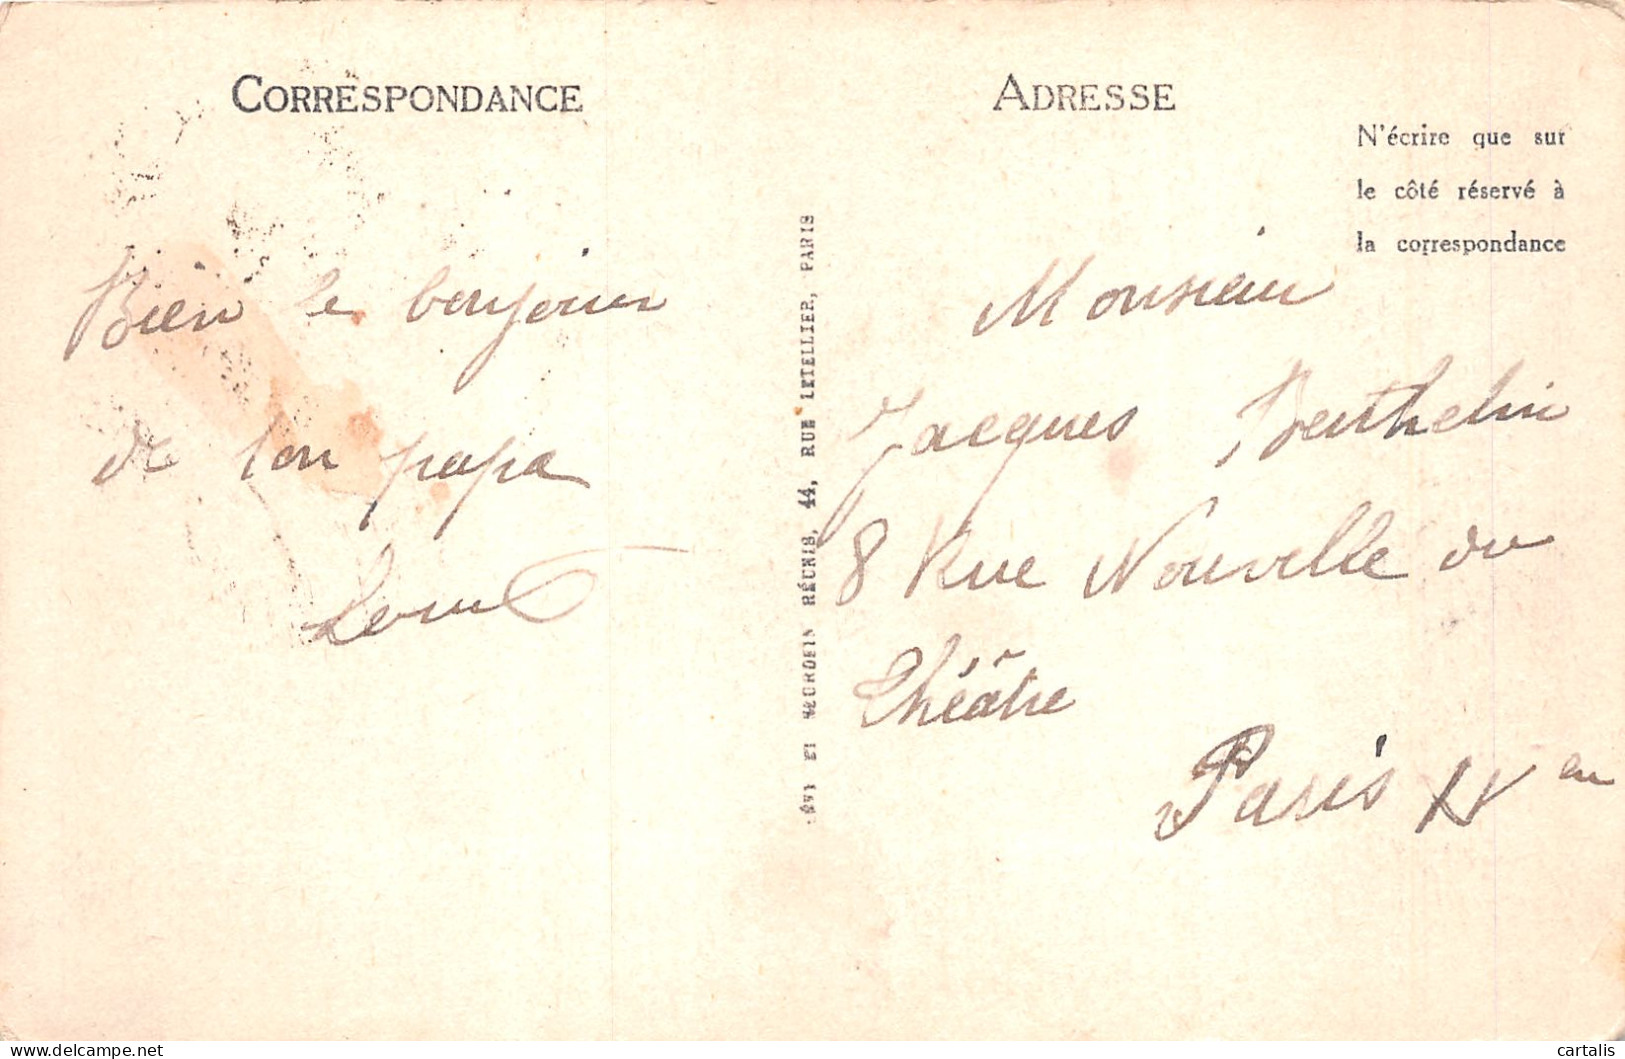 CORRESPONDANCE
Bien le bonjour
de ton papa
Louis
LÉVY ET NEURDEIN RÉUNIS, 44, RUE LETELLIER, PARIS
ADRESSE
N'écrire que sur
le côté réservé à
la correspondance
Monsieur
Jacques Berthelin
8 Rue Nouvelle du
Théâtre
Paris XV en
cartalis
www.delcampe.net